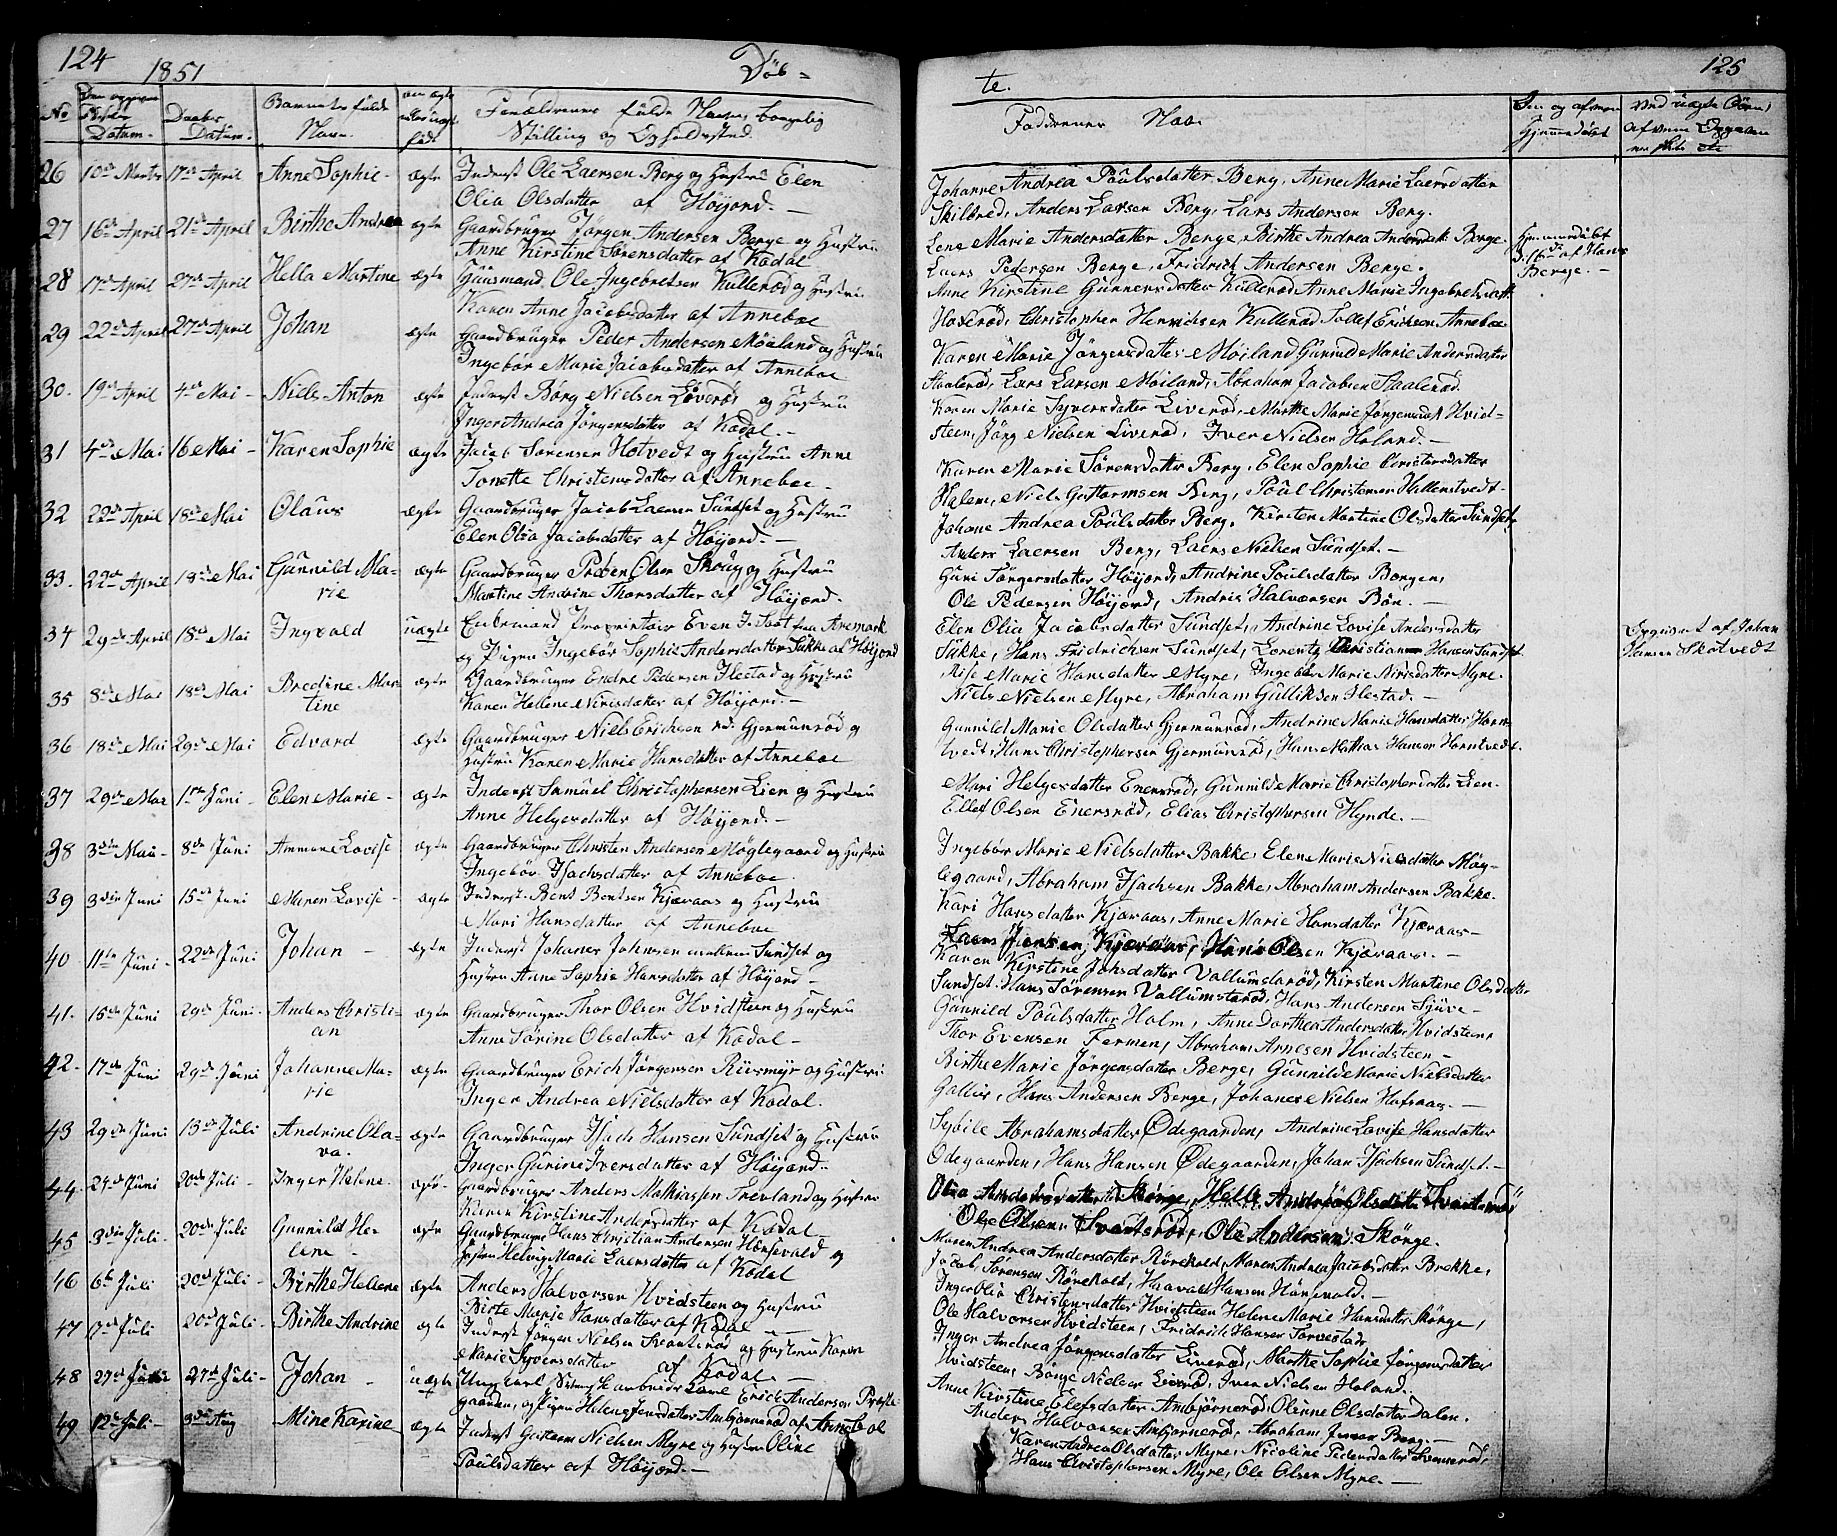 124
1851
Døb-
No
Datum.
Daabs Datum.
Barnets fulde Navn.
Forældrenes fulde Navne, borgelig Stilling og Opholdssted.
26 10de Marts 17de April Anne Sophie- ægte Inderst Ole Laersen Berg og Hustru Elen
Olia Olsdatter af Höijord.-
27 16de April 21de April Birthe Andrea ægte Gaardbruger Jörgen Andersen Berge og Hustru
Anne Kirstine Sörensdatter af Kodal
28 17de April 27de April Hella Martine ægte Huusmand Ole Ingebretsen Kullerød og Hustru
Karen Anne Jacobsdatter af Anneboe
29 22de April 27de April Johan ægte Gaardbruger Peder Andersen Möiland og Hustru
Ingebør Marie Jacobsdatter af Anneboe
30. 19de April 4de Mai- Niels Anton ægte Inderst Börg Nielsen Liverød og Hustru
Inger Andrea Jörgensdatter af Kodal.-
31 4de Mai 16 Mai- Karen Sophie ægte Jacob Sörensen Hotvedt og Hustru Anne
Tonette Christensdatter af Anneboe-
32 22de April 18de Mai Olaus ægte Gaardbruger Jacob Laersen Sundset og Hustru
Elen Olia Jacobsdatter af Höijord.-
33. 22de April 18de Mai Gunnild Ma- ægte Gaardbruger Preben Olsen Skoug og Hustru
rie Martine Andrine Thorsdatter af Höijord.-
34 29de April 18de Mai Ingvald uægte Enkemand Proprietair Even fra Aremark
og Pigen Ingebør Sophie Andersdatter Sukke af Höijord
35 8de Mai 18de Mai Bredine Mar- ægte Gaardbruger Endre Pedersen Ilestad og Hustru
tine Karen Hellene Nirisdatter af Höijord.-
36 18de Mai 29de Mai Edvard ægte Gaardbruger Niels Erichsen Gjermunrød og
Hustru Karen Marie Hansdatter af Anneboe
37 29de Mai 1ste Juni- Elen Marie- ægte Inderst Samuel Christophersen Lien og Hustru
Anne Helgesdatter af Höijord.-
38 3die Mai- 8de Juni Ammune Lovise ægte Gaardbruger Christen Andersen Møglegaard og Hustru
Ingebør Isachsdatter af Anneboe.
39 3die Juni 15de Juni Maren Lovise- ægte Inderst Bent Bentsen Kjæraas og Hustru
Mari Hansdatter af Anneboe
40 11te Juni- 22de Juni Johan- ægte Inderst Johanes Johnsen mellem Sundset og
Hustru Anne Sophie Hansdatter af Höijord-
41. 15de Juni 29de Juni- Anders Christi- ægte Gaardbruger Thor Olsen Hvidsteen og Hustru
an Anne Sörine Olsdatter af Kodal-
42- 17de Juni 29de Juni Johanne Ma- ægte Gaardbruger Erich Jörgensen Ruismyr og Hustru
rie Inger Andrea Nielsdatter af Kodal.
43 29de Juni 13de Juli Andrine Ola- ægte Gaardbruger Isach Hansen Sundset og Hustru
va. Inger Gurine Iversdatter af Höijord-
44- 24de Juni 20de Juli- Inger Helene- Gaardbruger Anders Mathiassen Trevland og Hustru
Karen Kirstine Andersdatter af Kodal
45 3die Juli- 20de Juli Gunnild He- ægte Gaardbruger Hans Christian Andersen Hörsevald og
lene- Hustru Helvig Marie Laersdatter af Kodal
46 6te Juli 20de Juli- Birthe Hellene ægte Anders Halvorsen Hvidsteen og Hustru
Birte Marie Hansdatter af Kodal-
47 Juli 20de Juli- Birthe Andrine ægte Inderst Jörgen Nielsen Svarterød og Hustru Karen
Marie Syversdatter af Kodal-
48 27de Juli- Johan uægte Ungkarl Erich Andersen Preste-
gaarden, og Pigen Helene Jensdatter Ambjørnrød af Anneboe
49 12te Juli- 3die Aug Mine Karine ægte Inderst Guttorm Nielsen Myre og Hustru Oline
Poulsdatter af Höijord.-
te.
125
Faddernes Navne.
Hjemmedøbt
Johanne Andrea Poulsdatter Berg, Anne Marie Laersdatter
Skilbred, Anders Larsen Berg, Lars Andersen Berg.
Lene Marie Andersdatter Berge, Birthe Andrea Andersdatt. Berge. Hjemmedøbt
Laers Pedersen Berge, Fridrich Andersen Berge. af Hans
Berge.-
Anne Kirstine Gunnersdatter Kullerød Anne Marie Ingebretsdatt.
Haverød, Christopher Henrichsen Kullerød Tollef Erichsen Anneboe.
Karen Marie Jörgensdatter Möiland Gunnild Marie Andersdatter
Staalerød, Lars Larsen Möiland, Abraham Jacobsen Staalerød.
Karen Marie Syversdatter Liverød, Marthe Marie Jörgensdt Hvid-
steen, Jörg Nielsen Liverød, Iver Nielsen Holand.-
Karen Marie Sörensdatter Berg, Elen Sophie Christensdatter
Halem, Niels Guttormsen Berg, Poul Christensen Hallenstvedt-
Johane Andrea Poulsdatter Berg, Kirsten Martine Olsdatter Sundset,
Anders Laersen Berg, Laers Nielsen Sundset.-
Guri Jörgensdatter Höijord, Andrine Poulsdatter Borgen,
Ole Pedersen Höijord, Andrias Halvorsen Bön.-
Elen Olia Jacobsdatter Sundset, Andrine Lovise Andersdatter
Sukke, Hans Fridrichsen Sundset, Lorentz Christian Hansen Sundset
Opgivet af Johan
Hansen Skotvedt
Marie Hansdatter Myre, Ingebør Marie Nirisdatter Myre.
Niels Nielsen Myre, Abraham Gulliksen Ilestad.-
Gunnild Marie Olsdatter Gjermunrød, Andrine Marie Hansdatter Horn-
tvedt, Hans Christophersen Gjermunrød, Hans Mathias Hansen Horntvedt.
Mari Helgesdatter Enersrød, Gunnilde Marie Christophersdatter Lien-
Ellef Olsen Enersrød, Elias Christophersen Hynde.-
Ingebør Marie Nielsdatter Bakke, Elene Marie Nielsdatter Møg-
legaard, Abraham Isachsen Bakke, Abraham Andersen Bakke.
Kari Hansdatter Kjæraas, Anne Marie Hansdatter Kjæraas-
Laers Jensen Kjæraas, Hans Olsen Kjæraas.-
Karen Kirstine Johsdatter Vallumsrød, Kirsten Martine Olsdatter
Sundset, Hans Sörensen Vallumsrød, Hans Andersen
Gunnild Poulsdatter Holm, Anne Dorthea Andersdatter Hvidsteen,
Thor Evensen Fermen, Abraham Arnesen Hvidsteen-
Birthe Marie Jörgensdatter Berge, Gunnilde Marie Nielsdatter
Gallis, Hans Andersen Berge, Johanes Nielsen Hafsaas.-
Sybile Abrahamsdatter Ødegaarden, Andrine Lovise Hansdatter
Ødegaarden, Hans Hansen Ødegaarden, Johan Isachsen Sundset.-
Olia Andersdatter Skørge, Helle Andrea Olsdatter Svarterød
Ole Olsen Svarterød, Ole Andersen Skörge.
Maren Andrea Andersdatter Rörkold, Maren Andrea Jacobsdatter Brekke,
Jacob Sörensen Rörkold, Haavald Hansen Hörsevald.-
Inger Olia Christensdatter Hvidsteen Helene Marie Hansdatter Skörge,
Ole Halvorsen Hvidsteen, Fridrich Hansen Torvestad,
Inger Andrea Jörgensdatter Liverød, Marthe Sophie Jörgensdatter
Hvidsteen, Börge Nielsen Liverød, Iver Nielsen Holand.
Anne Kirstine Elefsdatter Ambjörnrød, Olinne Olsdatter Dalen.
Anders Halvorsen Ambjörnrød, Abraham Berg.-
Karen Andrea Olsdatter Myre, Nicoline Pedersdatter
Hans Christophersen Myre, Ole Olsen Myre.-